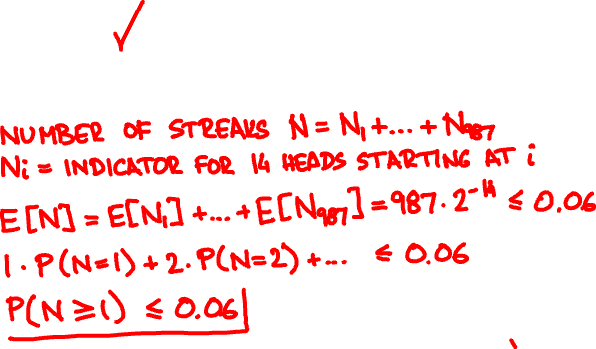 NUMBER OF STREAKS N = N₁ + ... + N₉₈₇
Nᵢ = INDICATOR FOR 14 HEADS STARTING AT i
E[N] = E[N₁] + ... + E[N₉₈₇] = 987 · 2⁻¹⁴ ≤ 0.06
1 · P(N=1) + 2 · P(N=2) + ... ≤ 0.06
P(N ≥ 1) ≤ 0.06